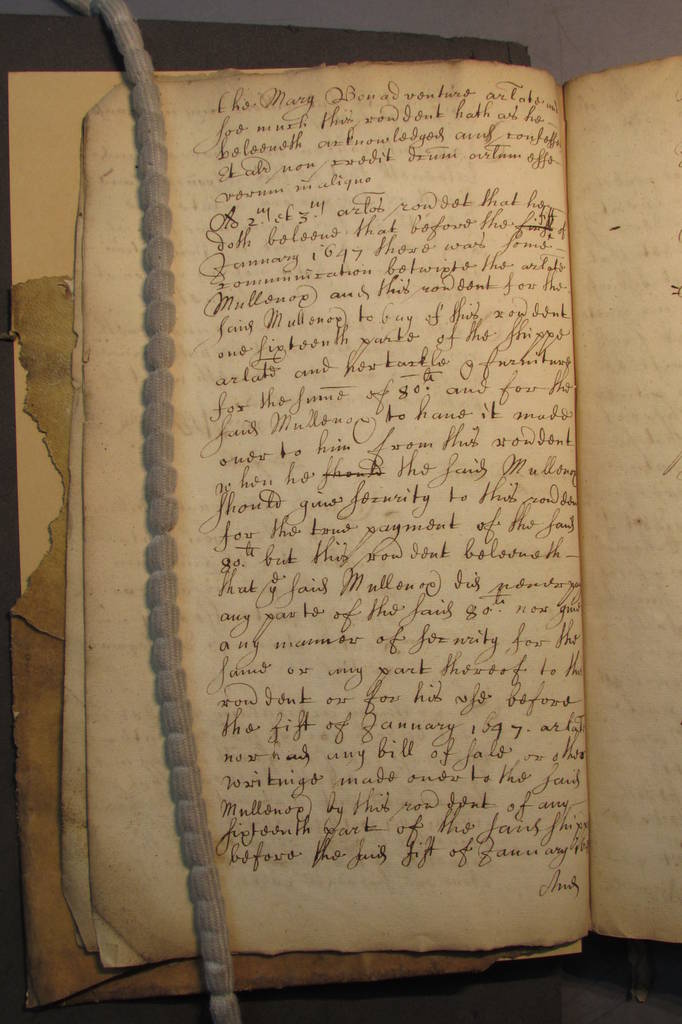 the Mary Bonadventure arlate and
soe much this rondent hath as he
beleeueth acknowledged and confessed
Et ald non credit dcum arlum esse
verum in aliquo
Ad 2.m et 3.m arlos rondet that he
doth beleeue that before the first of
January 1647 there was some
communication betwixte the arlate
Mullenox and this rondent for the
said Mullenox to buy of this rondent
one sixteenth parte of the shippe
arlate and her tackle & furniture
for the summe of 80.li and for the
said Mullenox to haue it made
ouer to him from this rondent
when he should the said Mullenox
should giue security to this rondent
for the true payment of the said
80.li but this rondent beleeueth
that ye said Mullenox did neuer pay
any parte of the said 80.li nor giue
any manner of security for the
same or any part thereof to the
rondent or for his vse before
the fift of January 1647. arlate
nor had any bill of sale or other
writinge made ouer to the said
Mullenox by this rondent of any
sixteenth part of the said shippe
before the said fift of January
And